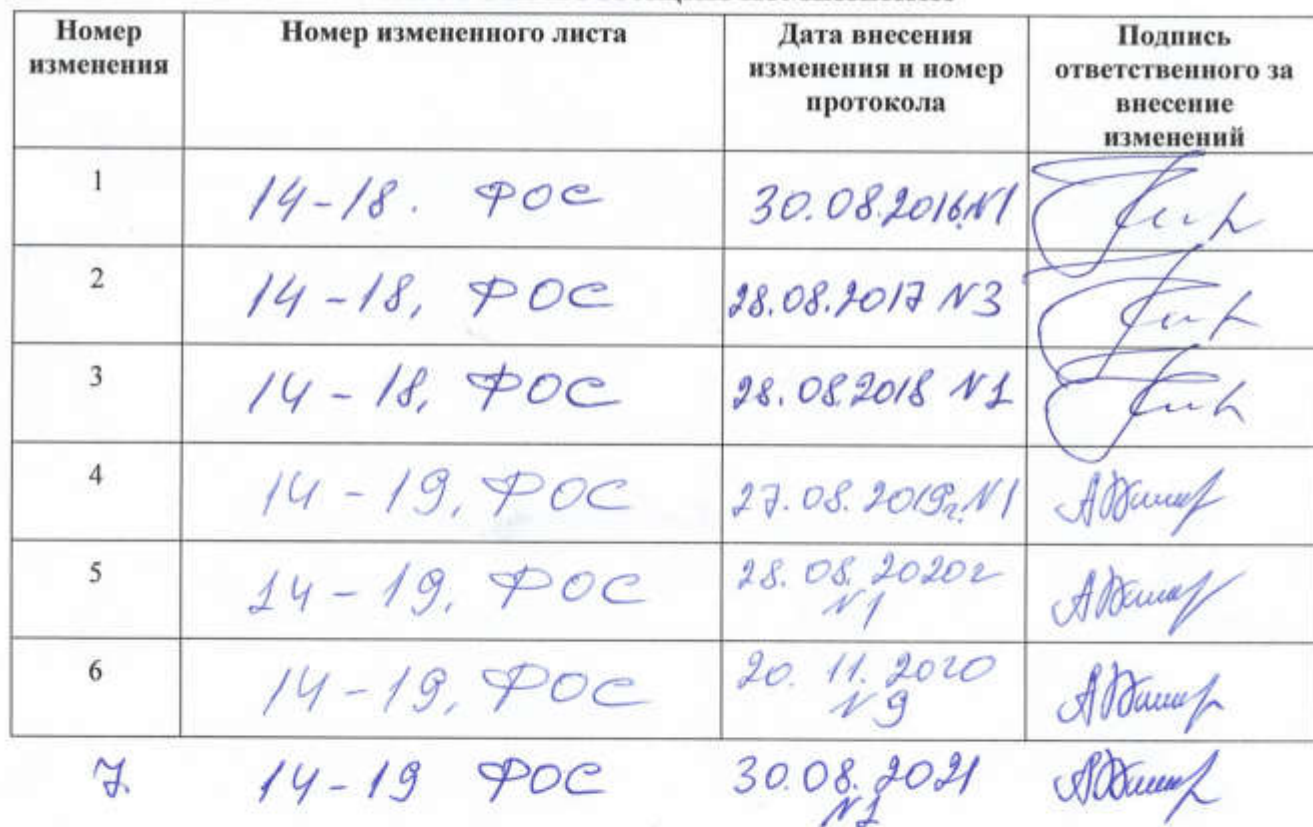 Номер изменения Номер измененного листа Дата внесения изменения и номер протокола Подпись ответственного за внесение изменений
1 14-18. ФОС 30.08.2016 N1
2 14-18, ФОС 28.08.2017 N3
3 14-18, ФОС 28.08.2018 N1
4 14-19, ФОС 27.08.2019г. N1
5 14-19, ФОС 28.08.2020г N1
6 14-19, ФОС 20.11.2020 N9
7. 14-19 ФОС 30.08.2021 N1